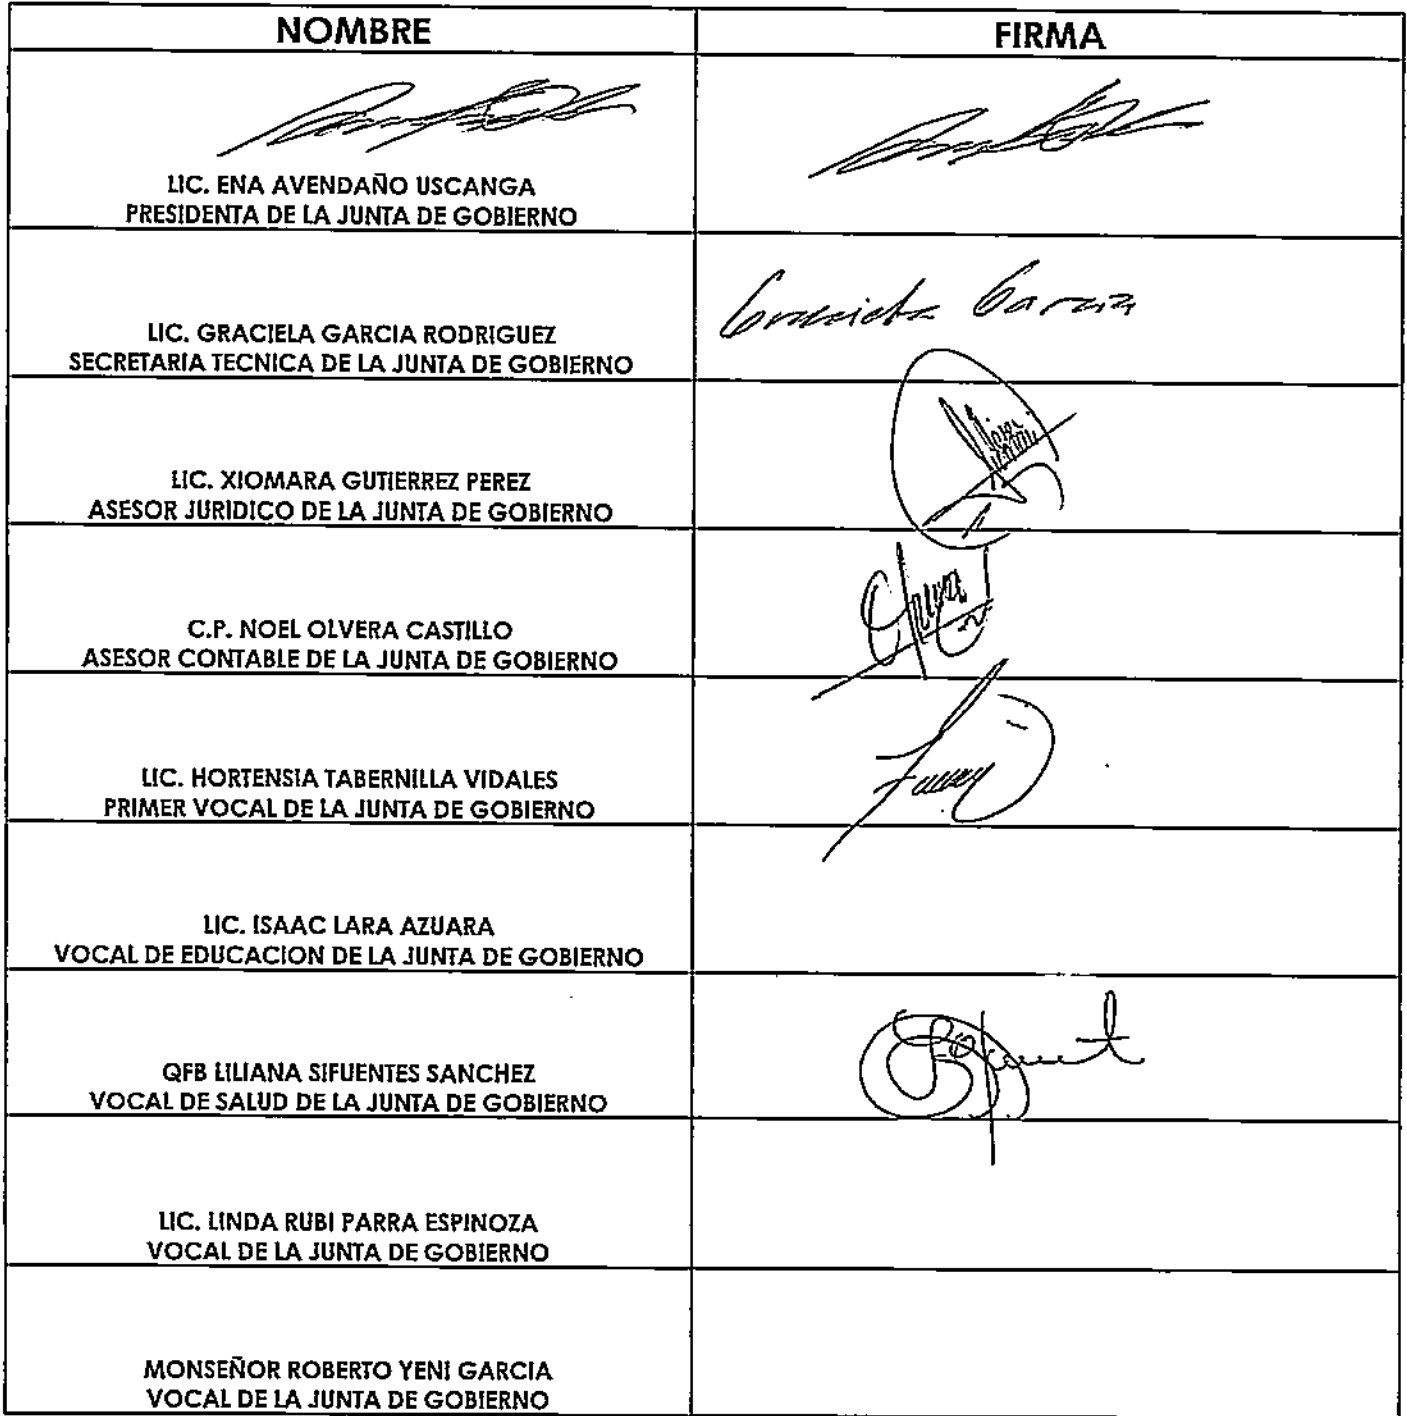 NOMBRE
FIRMA
LIC. ENA AVENDAÑO USCANGA
PRESIDENTA DE LA JUNTA DE GOBIERNO
LIC. GRACIELA GARCIA RODRIGUEZ
SECRETARIA TECNICA DE LA JUNTA DE GOBIERNO
Graciela Garcia
LIC. XIOMARA GUTIERREZ PEREZ
ASESOR JURIDICO DE LA JUNTA DE GOBIERNO
C.P. NOEL OLVERA CASTILLO
ASESOR CONTABLE DE LA JUNTA DE GOBIERNO
LIC. HORTENSIA TABERNILLA VIDALES
PRIMER VOCAL DE LA JUNTA DE GOBIERNO
LIC. ISAAC LARA AZUARA
VOCAL DE EDUCACION DE LA JUNTA DE GOBIERNO
QFB LILIANA SIFUENTES SANCHEZ
VOCAL DE SALUD DE LA JUNTA DE GOBIERNO
LIC. LINDA RUBI PARRA ESPINOZA
VOCAL DE LA JUNTA DE GOBIERNO
MONSEÑOR ROBERTO YENI GARCIA
VOCAL DE LA JUNTA DE GOBIERNO